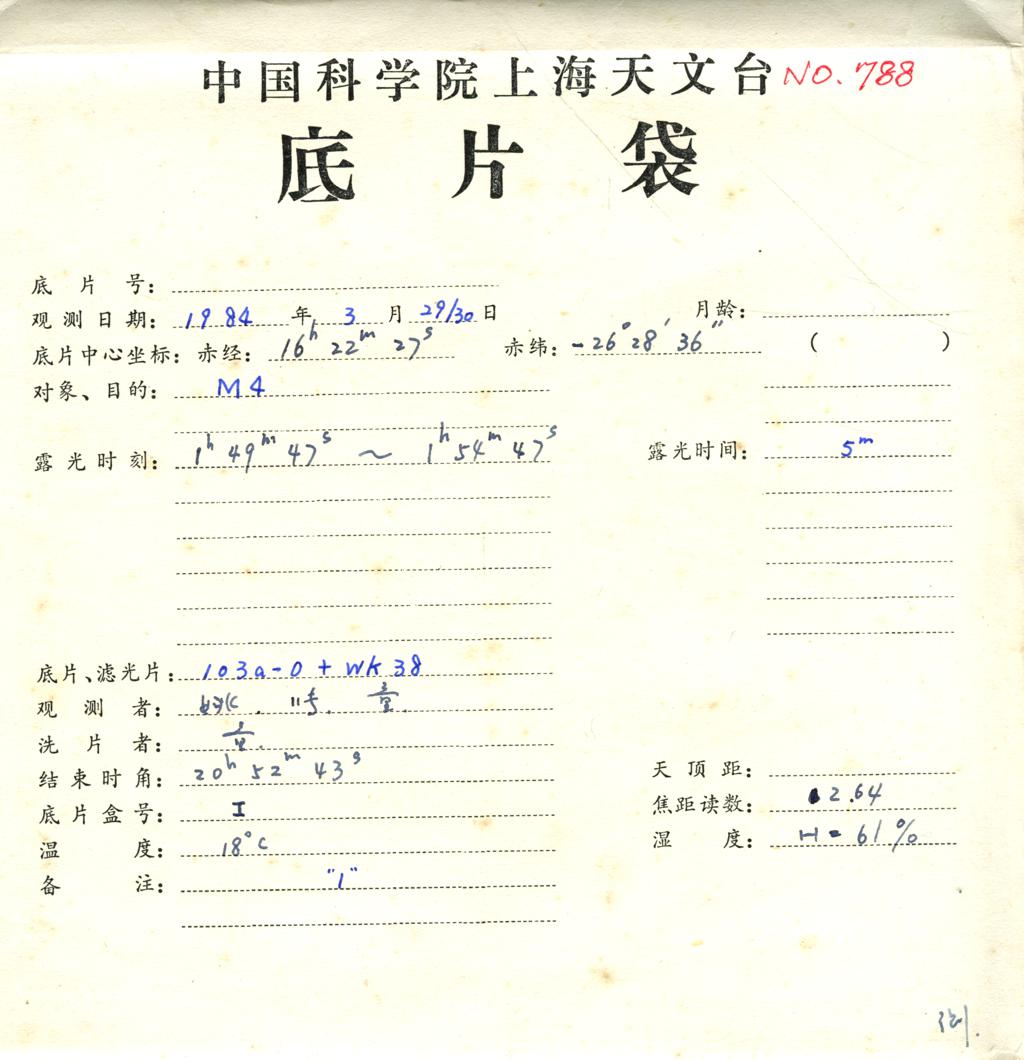 中国科学院上海天文台 NO. 788
底片袋
底片号：
观测日期：1984年3月29/30日 月龄：
底片中心坐标：赤经：16h 22m 27s 赤纬：-26° 28′ 36″ ( )
对象、目的：M4
露光时刻：1h 49m 47s ～ 1h 54m 47s 露光时间：5m
底片、滤光片：103a-O + WK38
观测者：
洗片者：
结束时角：20h 52m 43s
天顶距：
底片盒号：I
焦距读数：2.64
温度：18°C
湿度：H = 61%
备注："1"